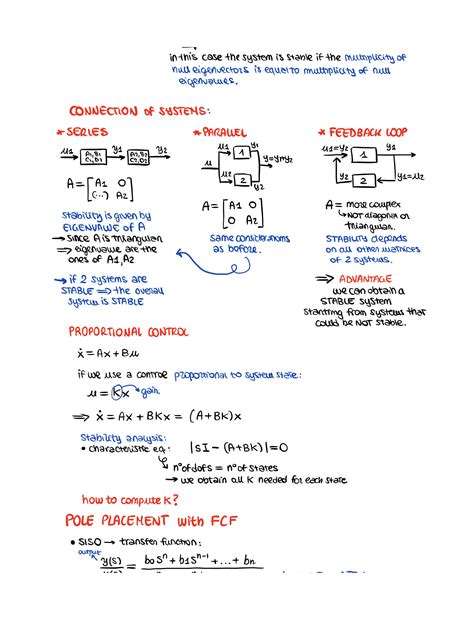 in this case the system is stable if the multiplicity of
null eigenvectors is equal to multiplicity of null
eigenvalues.
CONNECTION of SYSTEMS:
* SERIES
* PARALLEL
* FEEDBACK LOOP
u1 A1,B1 C1,D1 y1 A2,B2 C2,D2 y2
u u2 1 2 y1 y2 y=y1+y2
u1=y2 1 y1 y2 2 y1=u2
A = [A1 0
(...) A2]
Stability is given by
EIGENVALUE of A
→ since A is triangular
⇒ eigenvalue are the
ones of A1, A2
→ if 2 systems are
STABLE ⇒ the overall
system is STABLE
A = [A1 0
0 A2]
same considerations
as before.
A = more complex
↳ NOT diagonal or
triangular.
STABILITY depends
on all other matrices
of 2 systems.
⇒ ADVANTAGE
we can obtain a
STABLE system
starting from systems that
could be NOT stable.
PROPORTIONAL CONTROL
ẋ = Ax + Bu
if we use a control proportional to system state:
u = Kx gain.
⇒ ẋ = Ax + BKx = (A+BK)x
Stability analysis:
• characteristic eq: |sI - (A+BK)| = 0
n° of dofs = n° of states
→ we obtain all K needed for each state
how to compute K?
POLE PLACEMENT with FCF
• SISO → transfer function:
output
y(s) = b0 s^n + b1 s^n-1 + ... + bn